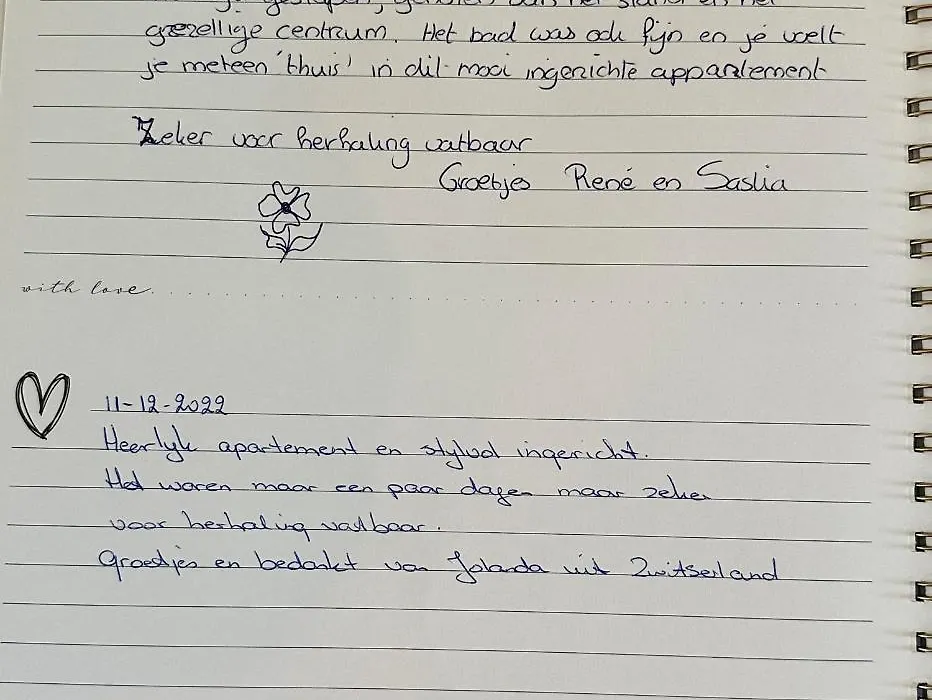 gezellige centrum. Het bad was ook fijn en je voelt
je meteen 'thuis' in dit mooi ingerichte appartement
Zeker voor herhaling vatbaar
Groetjes René en Saskia
with love.
11-12-2022
Heerlyk apartement en stylvol ingericht.
Het waren maar een paar dagen maar zeker
voor herhaling vatbaar.
Groetjes en bedankt van Jolanda uit Zwitserland